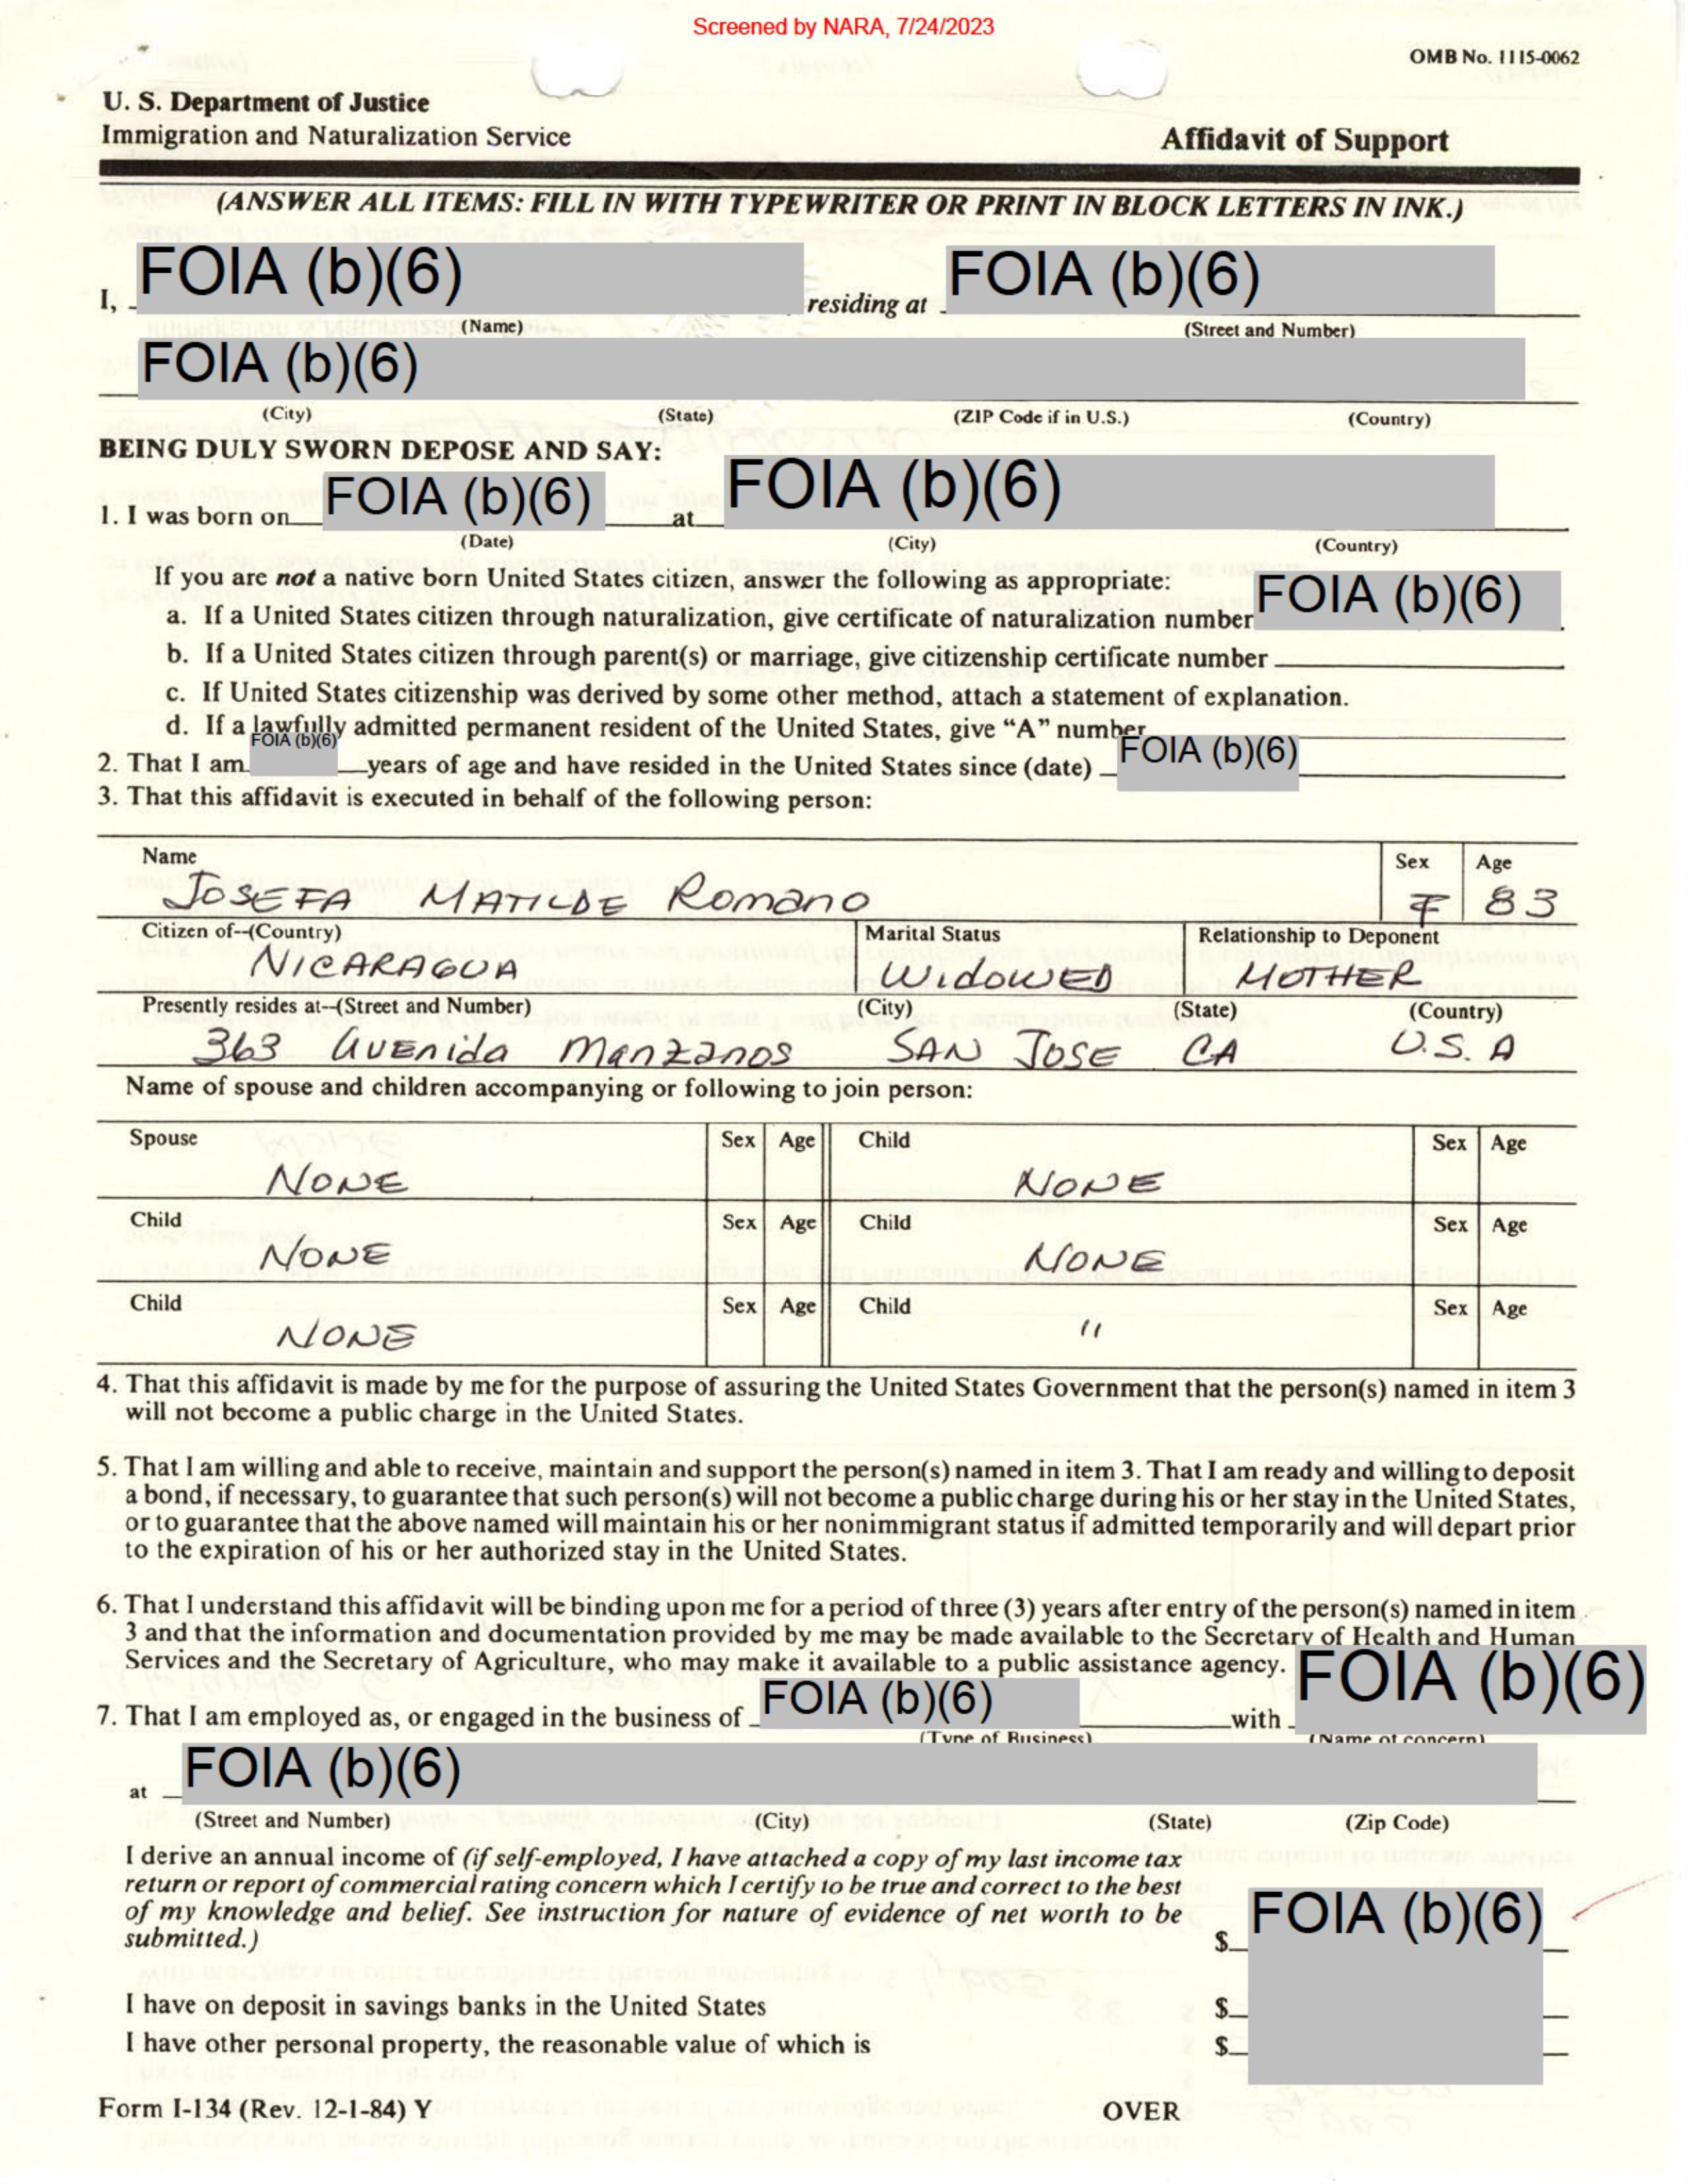 Screened by NARA, 7/24/2023
OMB No. 1115-0062
U. S. Department of Justice
Immigration and Naturalization Service
Affidavit of Support
(ANSWER ALL ITEMS: FILL IN WITH TYPEWRITER OR PRINT IN BLOCK LETTERS IN INK.)
I, FOIA (b)(6) residing at FOIA (b)(6)
(Name) (Street and Number)
FOIA (b)(6)
(City) (State) (ZIP Code if in U.S.) (Country)
BEING DULY SWORN DEPOSE AND SAY:
1. I was born on FOIA (b)(6) at FOIA (b)(6)
(Date) (City) (Country)
If you are not a native born United States citizen, answer the following as appropriate:
a. If a United States citizen through naturalization, give certificate of naturalization number FOIA (b)(6).
b. If a United States citizen through parent(s) or marriage, give citizenship certificate number
c. If United States citizenship was derived by some other method, attach a statement of explanation.
d. If a lawfully admitted permanent resident of the United States, give “A” number
2. That I am FOIA (b)(6) years of age and have resided in the United States since (date) FOIA (b)(6)
3. That this affidavit is executed in behalf of the following person:
Name Sex Age
JOSEFA MATILDE Romano F 83
Citizen of--(Country) Marital Status Relationship to Deponent
NICARAGUA WIDOWED MOTHER
Presently resides at--(Street and Number) (City) (State) (Country)
363 Avenida Manzanos SAN JOSE CA U.S.A
Name of spouse and children accompanying or following to join person:
Spouse Sex Age Child Sex Age
NONE NONE
Child Sex Age Child Sex Age
NONE NONE
Child Sex Age Child Sex Age
NONE "
4. That this affidavit is made by me for the purpose of assuring the United States Government that the person(s) named in item 3
will not become a public charge in the United States.
5. That I am willing and able to receive, maintain and support the person(s) named in item 3. That I am ready and willing to deposit
a bond, if necessary, to guarantee that such person(s) will not become a public charge during his or her stay in the United States,
or to guarantee that the above named will maintain his or her nonimmigrant status if admitted temporarily and will depart prior
to the expiration of his or her authorized stay in the United States.
6. That I understand this affidavit will be binding upon me for a period of three (3) years after entry of the person(s) named in item
3 and that the information and documentation provided by me may be made available to the Secretary of Health and Human
Services and the Secretary of Agriculture, who may make it available to a public assistance agency.
7. That I am employed as, or engaged in the business of FOIA (b)(6) with FOIA (b)(6)
(Type of Business) (Name of concern)
at FOIA (b)(6)
(Street and Number) (City) (State) (Zip Code)
I derive an annual income of (if self-employed, I have attached a copy of my last income tax
return or report of commercial rating concern which I certify to be true and correct to the best
of my knowledge and belief. See instruction for nature of evidence of net worth to be
submitted.) $ FOIA (b)(6)
I have on deposit in savings banks in the United States $
I have other personal property, the reasonable value of which is $
Form I-134 (Rev. 12-1-84) Y OVER